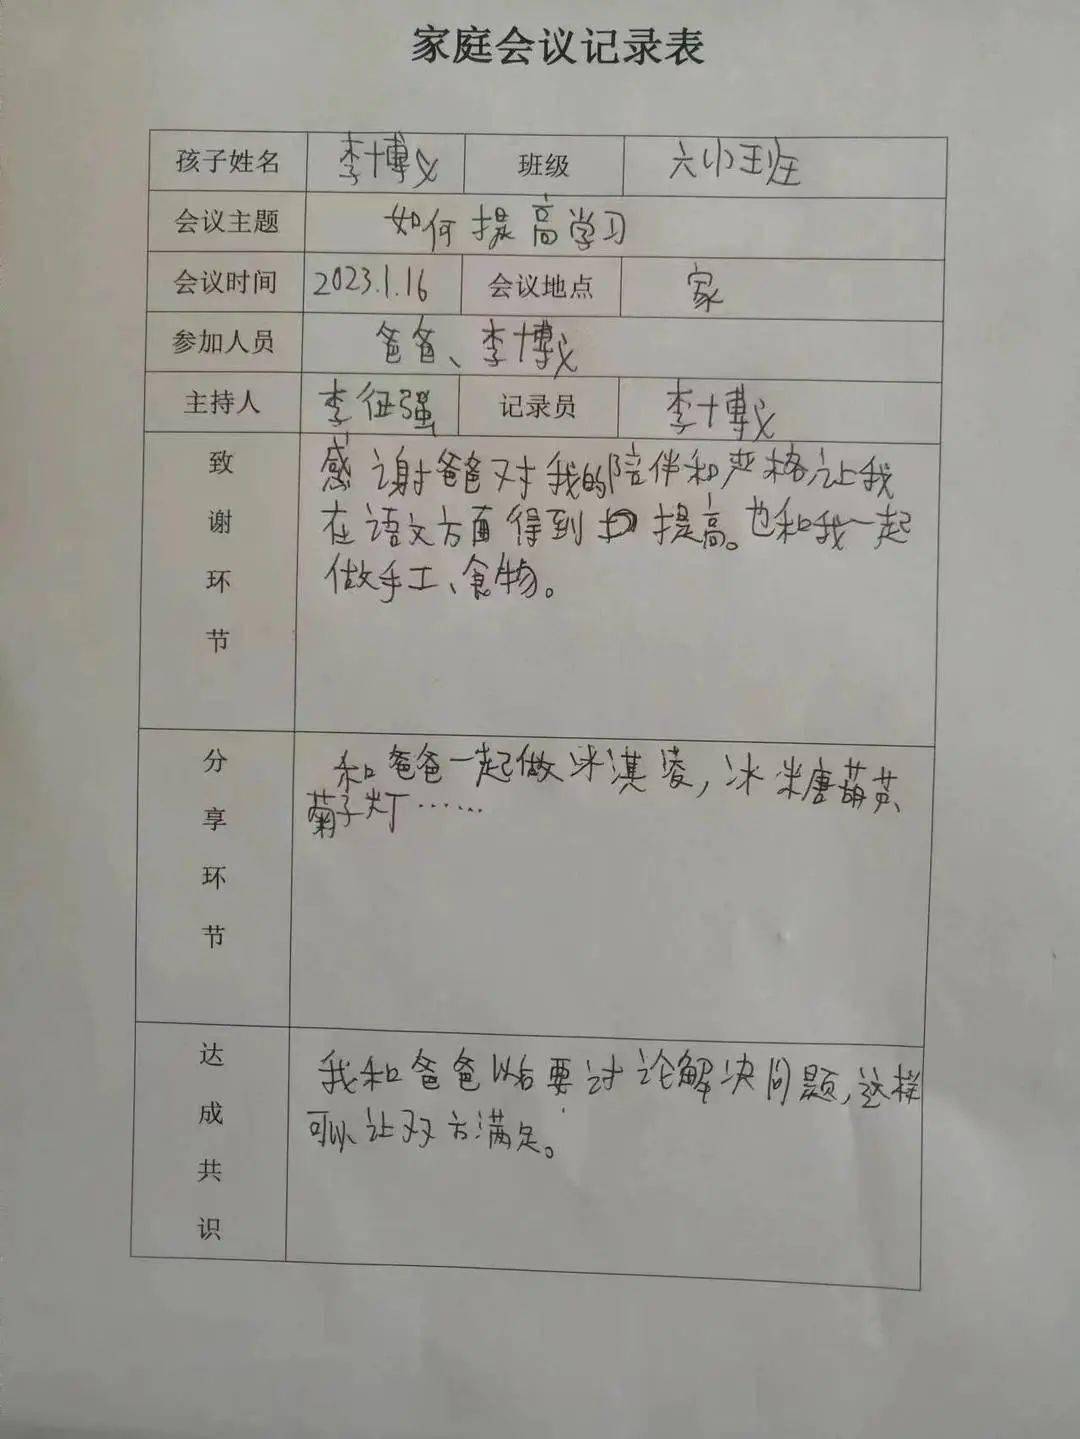 家庭会议记录表
孩子姓名 李博义 班级 六小班
会议主题 如何提高学习
会议时间 2023.1.16 会议地点 家
参加人员 爸爸、李博义
主持人 李征强 记录员 李博义
致谢环节
感谢爸爸对我的陪伴和严格,让我
在语文方面得到 提高。也和我一起
做手工、食物。
分享环节
和爸爸一起做冰淇凌,冰糖葫芦、
菊子灯……
达成共识
我和爸爸以后要讨论解决问题,这样
可以让双方满足。